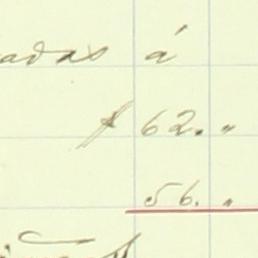 adas á
$ 62. "
56. "